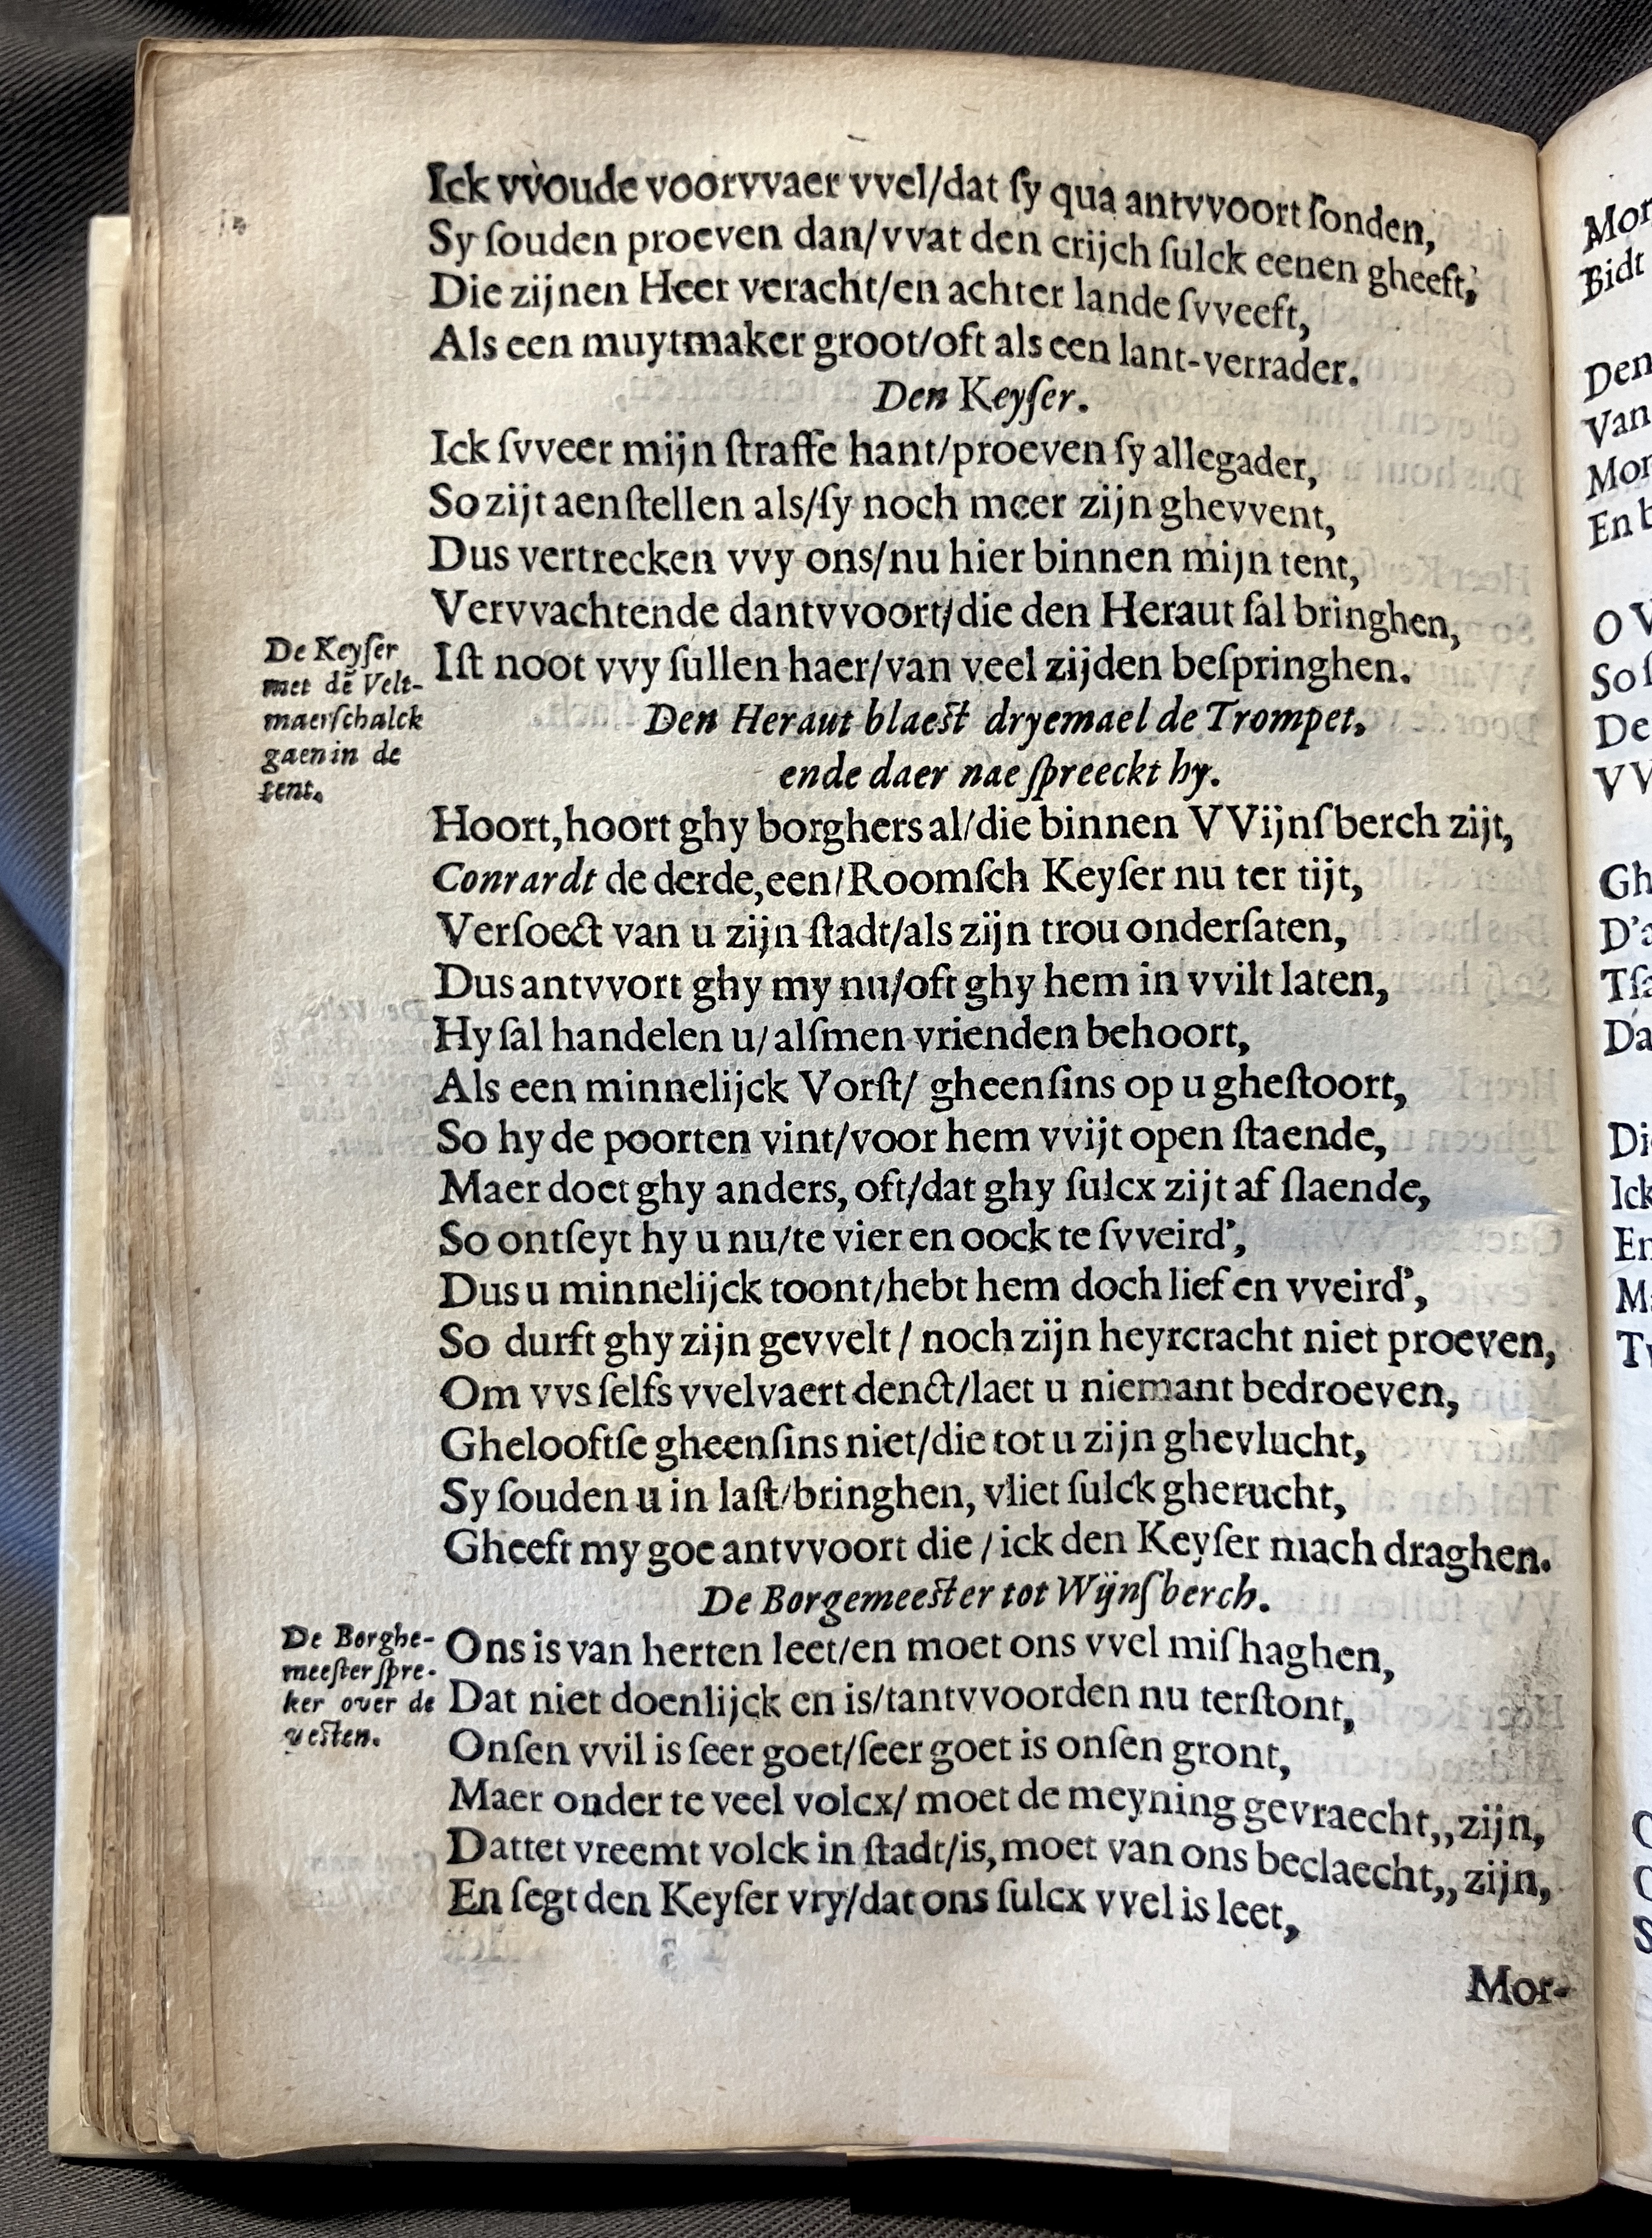 Ick vvoude voorvvaer vvel/dat ſy qua antvvoort ſonden,
Sy ſouden proeven dan/vvat den crijch ſulck eenen gheeft,
Die zijnen Heer veracht/en achter lande ſvveeft,
Als een muytmaker groot/oft als een lant-verrader.
Den Keyſer.
Ick ſvveer mijn ſtraffe hant/proeven ſy allegader,
So zijt aenſtellen als/ſy noch meer zijn ghevvent,
Dus vertrecken vvy ons/nu hier binnen mijn tent,
Vervvachtende dantvvoort/die den Heraut ſal bringhen,
Iſt noot vvy ſullen haer/van veel zijden beſpringhen.
De Keyſer
met dē Velt-
maerſchalck
gaen in de
tent.
Den Heraut blaeſt dryemael de Trompet,
ende daer nae ſpreeckt hy.
Hoort, hoort ghy borghers al/die binnen VVijnſberch zijt,
Conrardt de derde, een/Roomſch Keyſer nu ter tijt,
Verſoect van u zijn ſtadt/als zijn trou onderſaten,
Dus antvvort ghy my nu/oft ghy hem in vvilt laten,
Hy ſal handelen u/ alſmen vrienden behoort,
Als een minnelijck Vorſt/ gheenſins op u gheſtoort,
So hy de poorten vint/voor hem vvijt open ſtaende,
Maer doet ghy anders, oft/dat ghy ſulcx zijt af ſlaende,
So ontſeyt hy u nu/te vier en oock te ſvveird',
Dus u minnelijck toont/hebt hem doch lief en vveird',
So durft ghy zijn gevvelt / noch zijn heyrcracht niet proeven,
Om vvs ſelfs vvelvaert denct/laet u niemant bedroeven,
Ghelooftſe gheenſins niet/die tot u zijn ghevlucht,
Sy ſouden u in laſt/bringhen, vliet ſulck gherucht,
Gheeft my goe antvvoort die / ick den Keyſer mach draghen.
De Borgemeeſter tot Wijnſberch.
De Borghe-
meeſter ſpre-
ker over de
veſten.
Ons is van herten leet/en moet ons vvel miſhaghen,
Dat niet doenlijck en is/tantvvoorden nu terſtont,
Onſen vvil is ſeer goet/ſeer goet is onſen gront,
Maer onder te veel volcx/ moet de meyning gevraecht,, zijn,
Dattet vreemt volck in ſtadt/is, moet van ons beclaecht,, zijn,
En ſegt den Keyſer vry/dat ons ſulcx vvel is leet,
Mor-